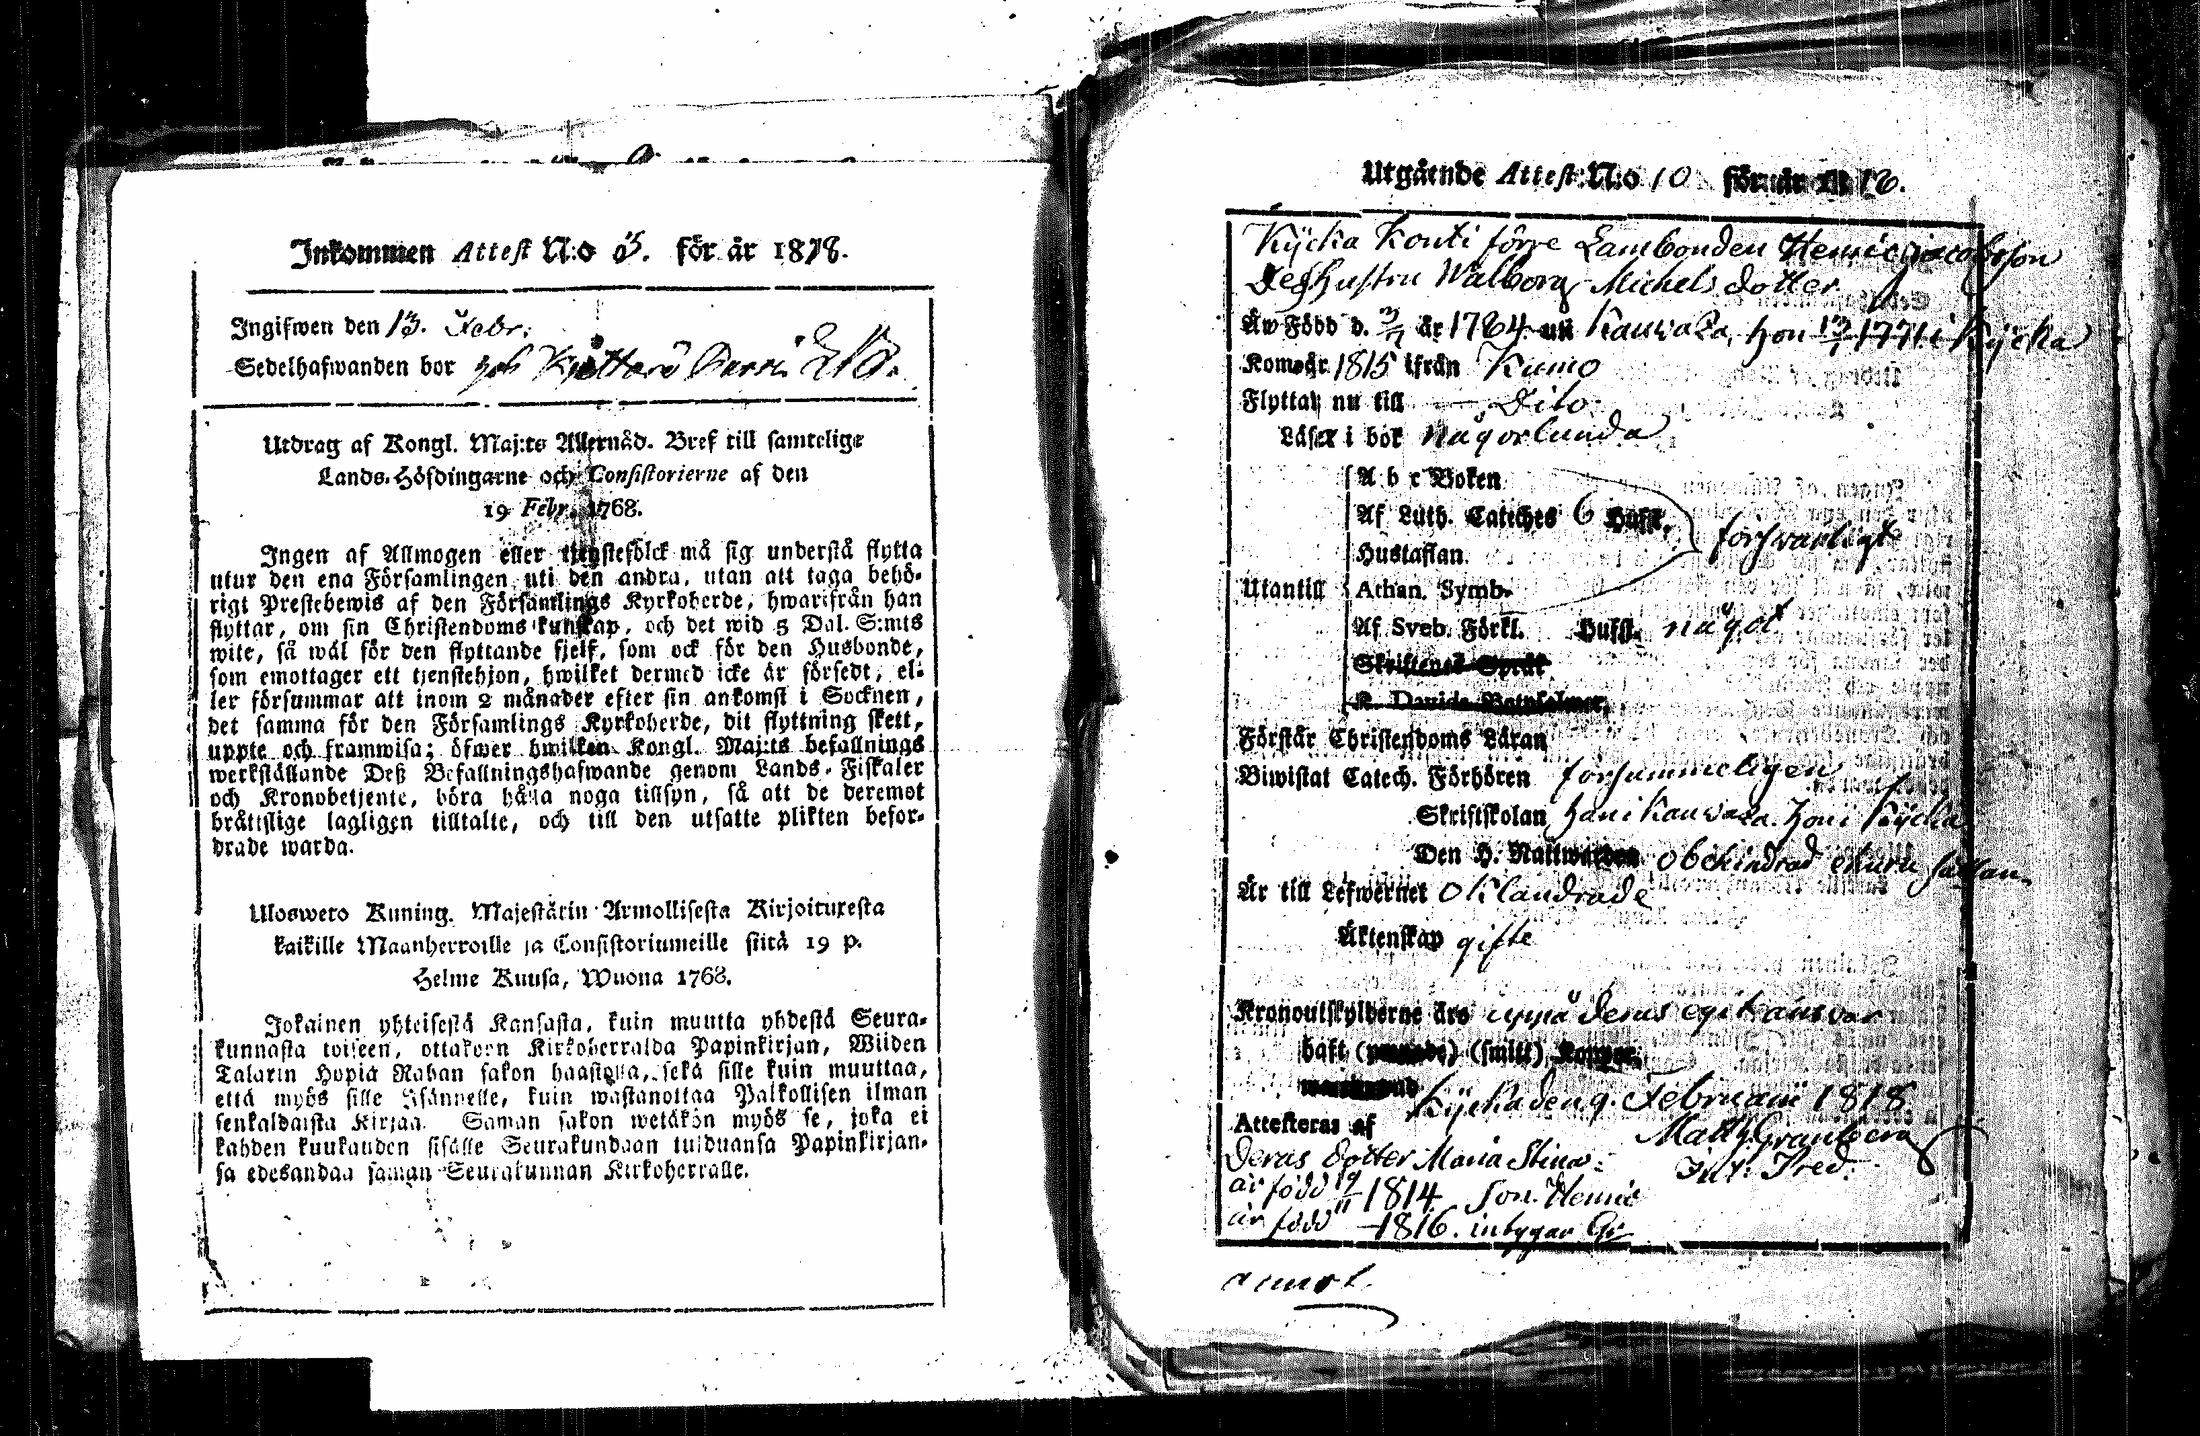 Inkommen Attest N:o 5. för år 1818.
Ingifwen den 13. Febr.
Sedelhafwanden bor
Utdrag af Kongl. Maj:ts Allernåd. Bref till samtelige
Lands-Höfdingarne och Consistorierne af den
19 Febr. 1768.
Ingen af Allmogen eller tjenstefölck må sig understå flytta
utur den ena Församlingen uti den andra, utan att taga behö-
rigt Prestebewis af den Församlings Kyrkoherde, hwarifrån han
flyttar, om sin Christendoms kunskap, och det wid 5 Dal. S:mts
wite, så wäl för den flyttande sjelf, som ock för den Husbonde,
som emottager ett tjenstehjon, hwilket dermed icke är försedt, el-
ler försummar att inom 2 månader efter sin ankomst i Socknen,
det samma för den Församlings Kyrkoherde, dit flyttning skett,
uppte och framwisa; öfwer hwilken Kongl. Maj:ts befallnings
werkställande Deß Befallningshafwande genom Lands-Fiskaler
och Kronobetjente, böra hålla noga tillsyn, så att de deremot
bråttslige lagligen tilltalte, och till den utsatte plikten befor-
drade warda.
Ulosweto Kuning. Majestätin Armollisesta Kirjoituxesta
kaikille Maanherroille ja Consistoriumeille siitä 19 p.
Helme Kuusa, Wuona 1768.
Jokainen yhteisestä Kansasta, kuin muutta yhdestä Seura-
kunnasta toiseen, ottakoon Kirkoherralda Papinkirjan, Wiiden
Talarin Hopia Rahan sakon haastolla, sekä sille kuin muuttaa,
että myös sille Isännelle, kuin wastanottaa Palkollisen ilman
senkaldaista Kirjaa. Saman sakon wetäkön myös se, joka ei
kahden kuukauden sisälle Seurakundaan tulduansa Papinkirjan-
sa edesandaa saman Seurakunnan Kirkoherralle.
Utgående Attest N:o 10 för år 1818.
Kÿcka Konti förre Lambonden Henric Jacobsson
Des Hustru Walborg Michels dotter
Äw Född d. 3/7 år 1764 uti Kauvaza, hon 13/1 1771 i Kÿcka
Kom år 1815 ifrån Kumo
Flyttar nu till Dito
Läser i bok någorlunda
A b c Boken
Af Luth. Catiches 6 Hufst.
Hustaflan.
försvarligt
Utantill Athan. Symb.
Af Sveb. Förkl. Hufst. något
Skriftenes Språk
K. Davids Botpsalmer.
Förstår Christendoms Läran
Biwistat Catech. Förhören försummeligen
Skriftskolan han i Kauvaza hon i Kÿcka
Den H. Nattwarden obehindrad ehuru sällan
Är till Lefwernet oklandrade
Äktenskap gifte
Kronoutskylderne äro uppå deras eget ansvar
haft (smitt) Koppor,
Kÿcka den 9. Februarii 1818
Attesteras af Matth. Granberg
Deras dotter Maria Stina
är född 19/11 1814 son Henric
är född 1816.